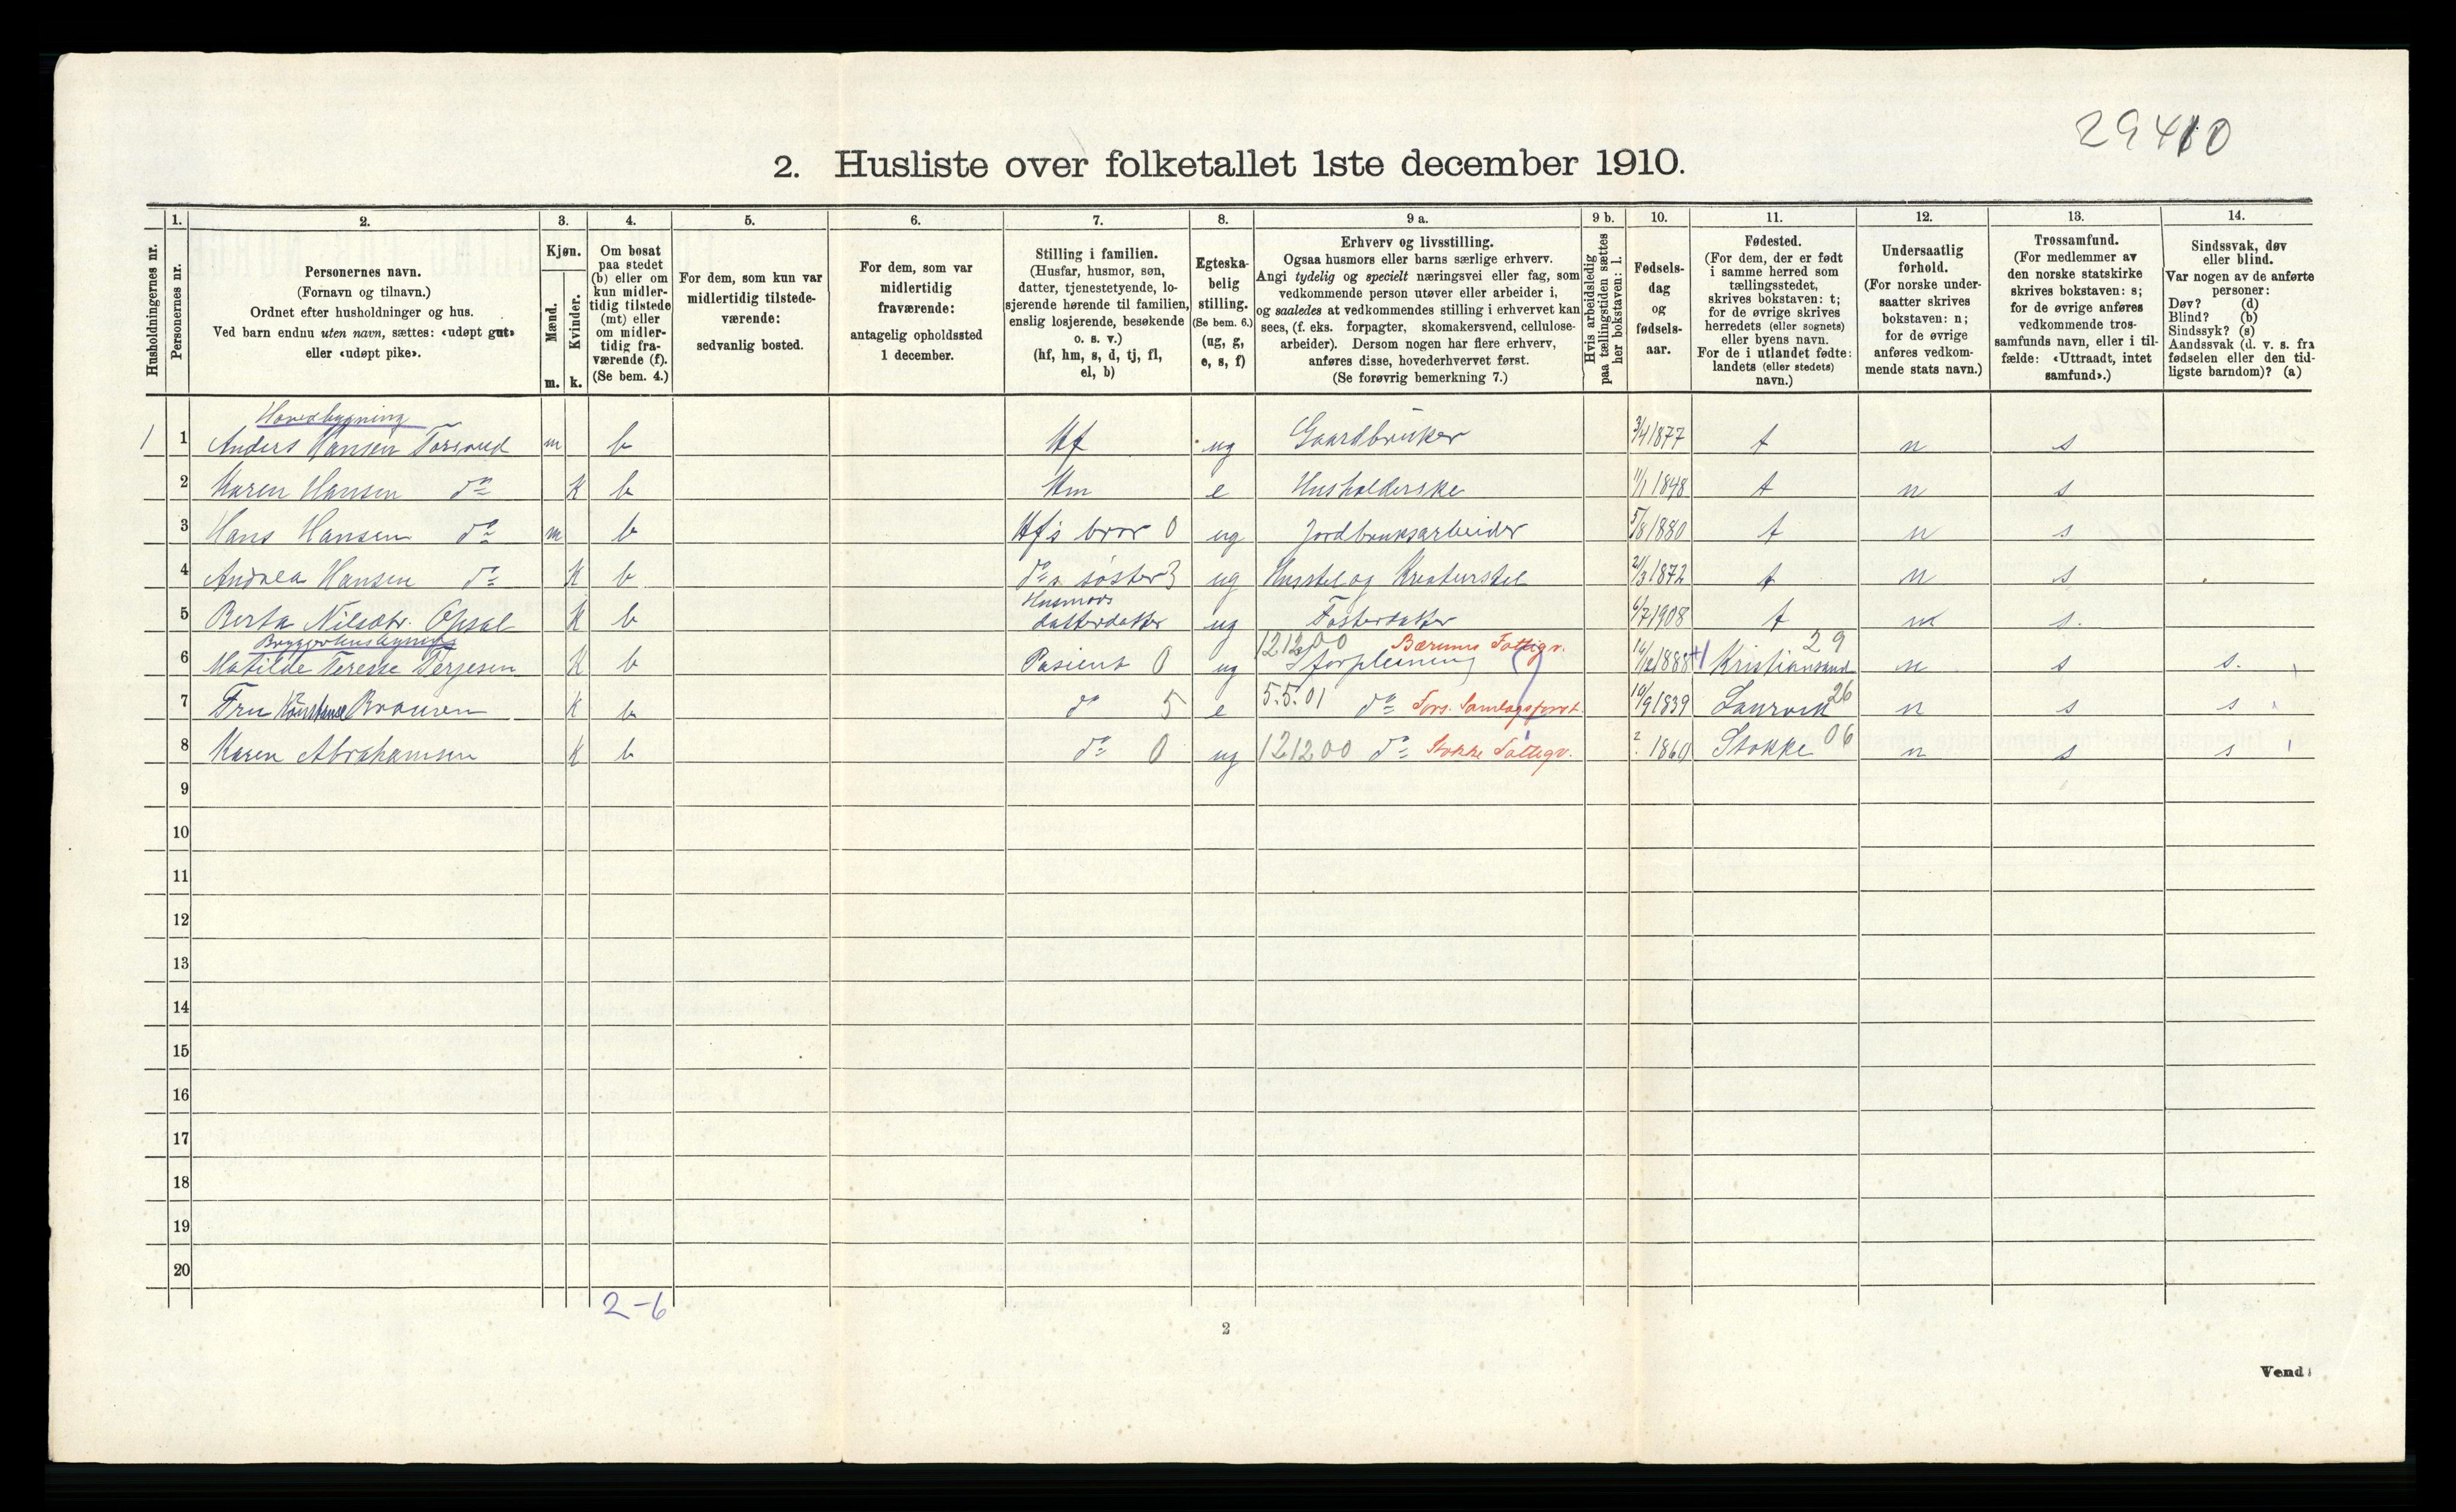 29410
2. Husliste over folketallet 1ste december 1910.
Husholdningernes nr.
1. Personernes nr.
2. Personernes navn. (Fornavn og tilnavn.) Ordnet efter husholdninger og hus. Ved barn endnu uten navn, sættes: «udøpt gut» eller «udøpt pike».
3. Kjøn. Mænd. m. Kvinder. k.
4. Om bosat paa stedet (b) eller om kun midlertidig tilstede (mt) eller om midlertidig fraværende (f). (Se bem. 4.)
5. For dem, som kun var midlertidig tilstedeværende: sedvanlig bosted.
6. For dem, som var midlertidig fraværende: antagelig opholdssted 1 december.
7. Stilling i familien. (Husfar, husmor, søn, datter, tjenestetyende, losjerende hørende til familien, enslig losjerende, besøkende o. s. v.) (hf, hm, s, d, tj, fl, el, b)
8. Egteskabelig stilling. (Se bem. 6.) (ug, g, e, s, f)
9 a. Erhverv og livsstilling. Ogsaa husmors eller barns særlige erhverv. Angi tydelig og specielt næringsvei eller fag, som vedkommende person utøver eller arbeider i, og saaledes at vedkommendes stilling i erhvervet kan sees, (f. eks. forpagter, skomakersvend, cellulosearbeider). Dersom nogen har flere erhverv, anføres disse, hovederhvervet først. (Se forøvrig bemerkning 7.)
9 b. Hvis arbeidsledig paa tællingstiden sættes her bokstaven: l.
10. Fødselsdag og fødselsaar.
11. Fødested. (For dem, der er født i samme herred som tællingsstedet, skrives bokstaven: t; for de øvrige skrives herredets (eller sognets) eller byens navn. For de i utlandet fødte: landets (eller stedets) navn.)
12. Undersaatlig forhold. (For norske undersaatter skrives bokstaven: n; for de øvrige anføres vedkommende stats navn.)
13. Trossamfund. (For medlemmer av den norske statskirke skrives bokstaven: s; for de øvrige anføres vedkommende trossamfunds navn, eller i tilfælde: «Uttraadt, intet samfund».)
14. Sindssvak, døv eller blind. Var nogen av de anførte personer: Døv? (d) Blind? (b) Sindssyk? (s) Aandssvak (d. v. s. fra fødselen eller den tidligste barndom)? (a)
Hovedbygning
1 1 Anders Hansen m b Hf ug Gaardbruker 3/4 1877 t n s
2 Karen Hansen do K b Hm e Husholderske 11/1 1848 t n s
3 Hans Hansen do m b Hf's bror 0 ug Jordbruksarbeider 5/8 1880 t n s
4 Andrea Hansen do K b do s søster 3 ug Husstel og Kreaturstel 2/3 1872 t n s
5 Berta Nilsdtr. Opsal K b Husmors datterdatter ug Fosterdatter 6/7 1908 t n s.
Bryggerhusbygning
6 Matilde Terese Terjesen K b Pasient 0 ug 121200 I forpleining Bærums Fattigv. 14/12 1888 Kristiansand 29 n s s.
7 Fru Konstanse K b do 5 e 5.5.01 do 19/9 1839 Laurvik 26 n s s
8 Karen Abrahamsen K b do 0 ug 121200 do Stokke Fattigv. ? 1860 Stokke 06 n s s
9
10
11
12
13
14
15
16
17
18
19
20
2-6
2
Vend